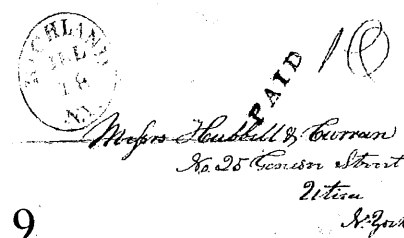 RICHLAND
18
N.Y.
PAID 10
Messrs Hubbell & Curran
No. 25 Genesee Street
Utica
N. York
9